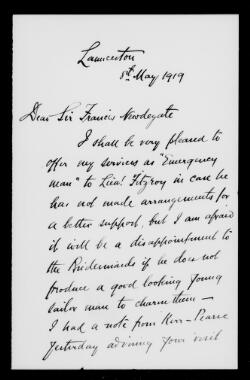 Launceston
8th May 1919
Dear Sir Francis Newdegate
I shall be very pleased to
offer my services as "Emergency
man" to Lieut. Fitzroy in case he
has not made arrangements for
a better support, but I am afraid
it will be a disappointment to
the Bridesmaids if he does not
produce a good looking young
sailor man to charm them —
I had a note from Kerr-Pearse
yesterday advising your visit